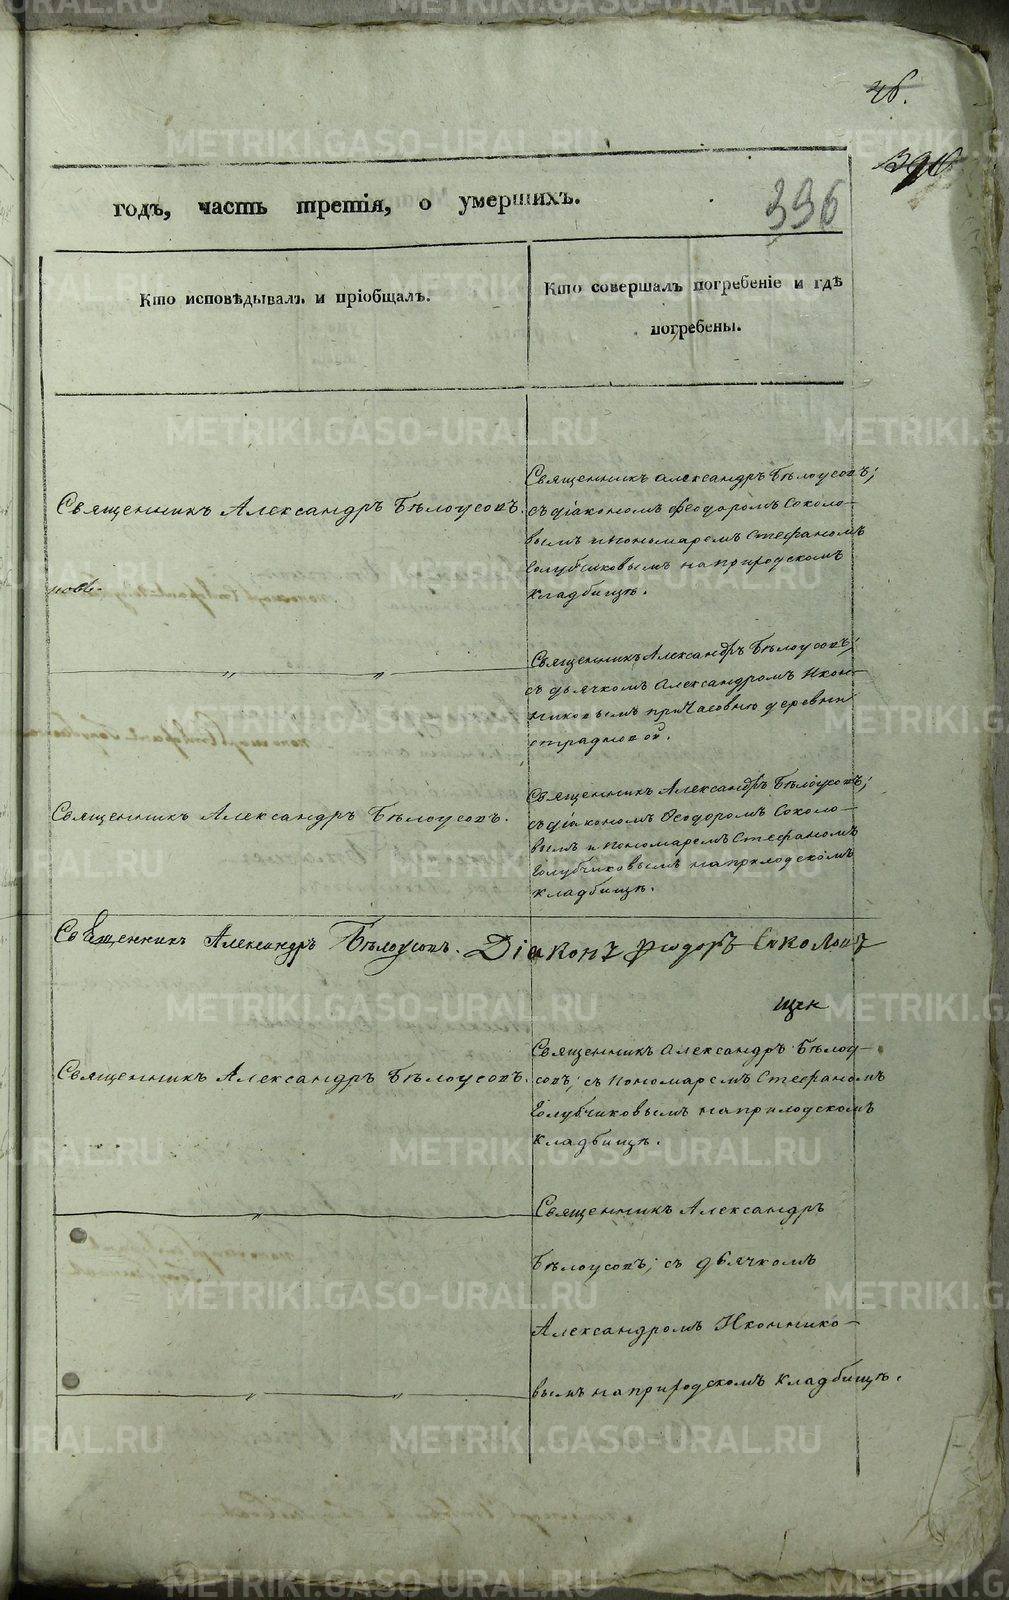 46.
396
годъ, часть третія, о умершихъ.
336
Кто исповѣдывалъ и пріобщалъ.
Кто совершалъ погребеніе и гдѣ
погребены.
Священникъ Александръ Бѣлоусовъ.
Священникъ Александръ Бѣлоусовъ;
съ діакономъ Феодоромъ Соколо–
вымъ и пономаремъ Стефаномъ
Голубчиковымъ на природскомъ
кладбищѣ.
Священникъ Александръ Бѣлоусовъ;
съ дьячкомъ Александромъ Икон–
никовымъ при Часовнѣ деревни
Священникъ Александръ Бѣлоусовъ.
Священникъ Александръ Бѣлоусовъ;
съ діакономъ Ѳеодоромъ Соколо–
вымъ и пономаремъ Стефаномъ
Голубчиковымъ на природскомъ
кладбищѣ.
Священникъ Александръ Бѣлоусовъ. Діаконъ Ѳеодоръ Соколовъ
щен
Священникъ Александръ Бѣлоусовъ.
Священникъ Александръ Бѣлоу–
совъ; съ пономаремъ Стефаномъ
Голубчиковымъ на природскомъ
кладбищѣ.
Священникъ Александръ
Бѣлоусовъ; съ дьячкомъ
Александромъ Иконнико–
вымъ на природскомъ кладбищѣ.
METRIKI.GASO-URAL.RU